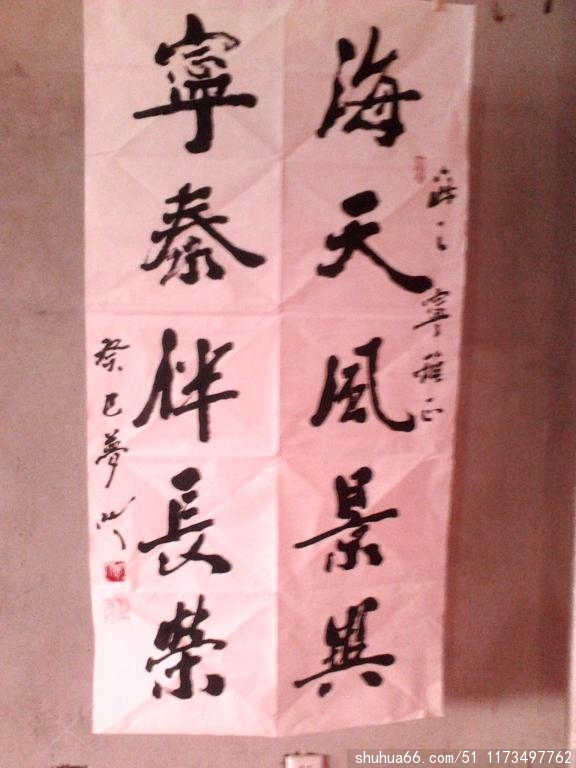 寧雅正
海天風景異
寧泰伴長榮
癸巳夢
shuhua66.com/51 1173497762